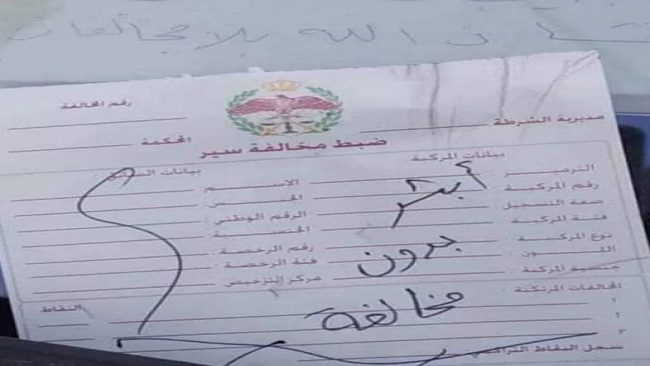 الله بلا مخالفات
رقم المخالفة
مديرية الشرطة
المحكمة
ضبط مخالفة سير
بيانات المركبة
بيانات السائق
الترميز
الاسم
رقم المركبة
الجنس
صفة التسجيل
الرقم الوطني
فئة المركبة
الجنسية
نوع المركبة
رقم الرخصة
اللون
فئة الرخصة
جنسية المركبة
مركز الترخيص
أبشر
بدون
مخالفة
المخالفات المرتكبة
النقاط
١
٢
٣
سجل النقاط